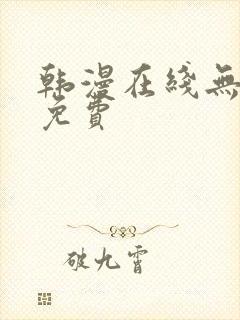 韩漫在线無
免費
破九霄